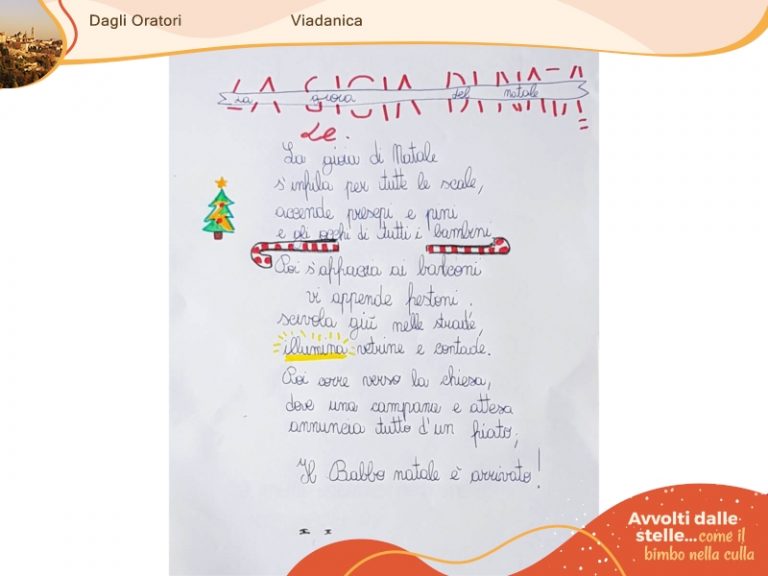 Dagli Oratori Viadanica
LA GIOIA DI NATA
La gioia del natale
Le.
La gioia di Natale
s'infila per tutte le scale,
accende presepi e pini
e gli occhi di tutti i bambini
Poi s'affaccia ai balconi
vi appende festoni.
scivola giù nelle strade,
illumina vetrine e contade.
Poi corre verso la chiesa,
dove una campana e attesa
annuncia tutto d'un fiato;
Il Babbo natale è arrivato!
Avvolti dalle
stelle...come il
bimbo nella culla